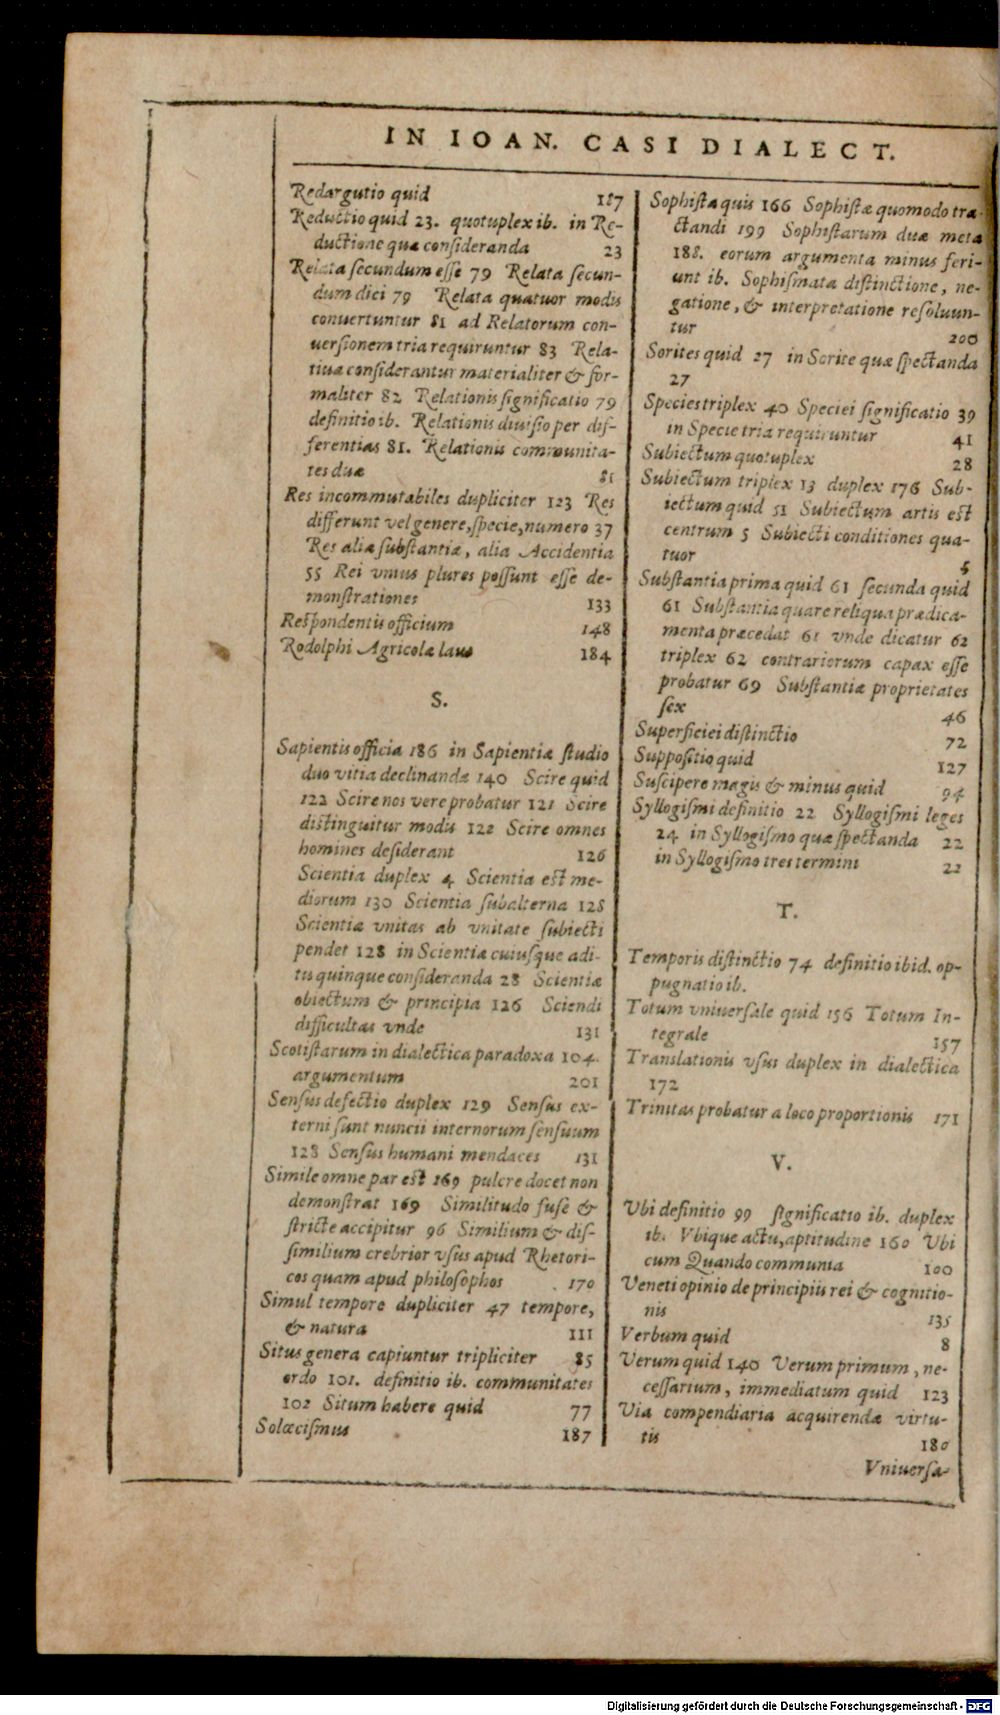 IN IOAN. CASI DIALECT.
Redargutio quid 187
Reductio quid 23. quotuplex ib. in Re-
ductione quæ consideranda 23
Relata secundum esse 79 Relata secun-
dum dici 79 Relata quatuor modis
conuertuntur 81 ad Relatorum con-
uersionem tria requiruntur 83 Rela-
tiua considerantur materialiter & for-
maliter 82 Relationis significatio 79
definitio ib. Relationis diuisio per dif-
ferentias 81. Relationis communita-
tes duæ 81
Res incommutabiles dupliciter 123 Res
differunt vel genere, specie, numero 37
Res aliæ substantiæ, alia Accidentia
55 Rei vnius plures possunt esse de-
monstrationes 133
Respondentis officium 148
Rodolphi Agricolæ laus 184
S.
Sapientis officia 186 in Sapientiæ studio
duo vitia declinanda 140 Scire quid
122 Scire nos vere probatur 121 Scire
distinguitur modis 122 Scire omnes
homines desiderant 126
Scientia duplex 4 Scientia est me-
diorum 130 Scientia subalterna 128
Scientiæ vnitas ab vnitate subiecti
pendet 128 in Scientiæ cuiusque adi-
tu quinque consideranda 28 Scientiæ
obiectum & principia 126 Sciendi
difficultas vnde 131
Scotistarum in dialectica paradoxa 104.
argumentum 201
Sensus defectio duplex 129 Sensus ex-
terni sunt nuncii internorum sensuum
128 Sensus humani mendaces 131
Simile omne par est 169 pulcre docet non
demonstrat 169 Similitudo fuse &
stricte accipitur 96 Similium & dis-
similium crebrior vsus apud Rhetori-
cos quam apud philosophos 170
Simul tempore dupliciter 47 tempore,
& natura 111
Situs genera capiuntur tripliciter 85
ordo 101. definitio ib. communitates
102 Situm habere quid 77
Solœcismus 187
Sophista quis 166 Sophistæ quomodo tra-
ctandi 199 Sophistarum duæ meta
188. eorum argumenta minus feri-
unt ib. Sophismata distinctione, ne-
gatione, & interpretatione resoluun-
tur 200
Sorites quid 27 in Sorite quæ spectanda
27
Species triplex 40 Speciei significatio 39
in Specie tria requiruntur 41
Subiectum quotuplex 28
Subiectum triplex 13 duplex 176 Sub-
iectum quid 51 Subiectum artis est
centrum 5 Subiecti conditiones qua-
tuor 5
Substantia prima quid 61 secunda quid
61 Substantia quare reliqua prædica-
menta præcedat 61 vnde dicatur 62
triplex 62 contrariorum capax esse
probatur 69 Substantiæ proprietates
sex 46
Superficiei distinctio 72
Suppositio quid 127
Suscipere magis & minus quid 94
Syllogismi definitio 22 Syllogismi leges
24 in Syllogismo quæ spectanda 22
in Syllogismo tres termini 22
T.
Temporis distinctio 74 definitio ibid. op-
pugnatio ib.
Totum vniuersale quid 156 Totum In-
tegrale 157
Translationis vsus duplex in dialectica
172
Trinitas probatur a loco proportionis 171
V.
Vbi definitio 99 significatio ib. duplex
ib. Vbique actu, aptitudine 160 Vbi
cum Quando communia 100
Veneti opinio de principiis rei & cognitio-
nis 135
Verbum quid 8
Verum quid 140 Verum primum, ne-
cessarium, immediatum quid 123
Via compendiaria acquirendæ virtu-
tis 180
Vniuersa-
Digitalisierung gefördert durch die Deutsche Forschungsgemeinschaft - DFG